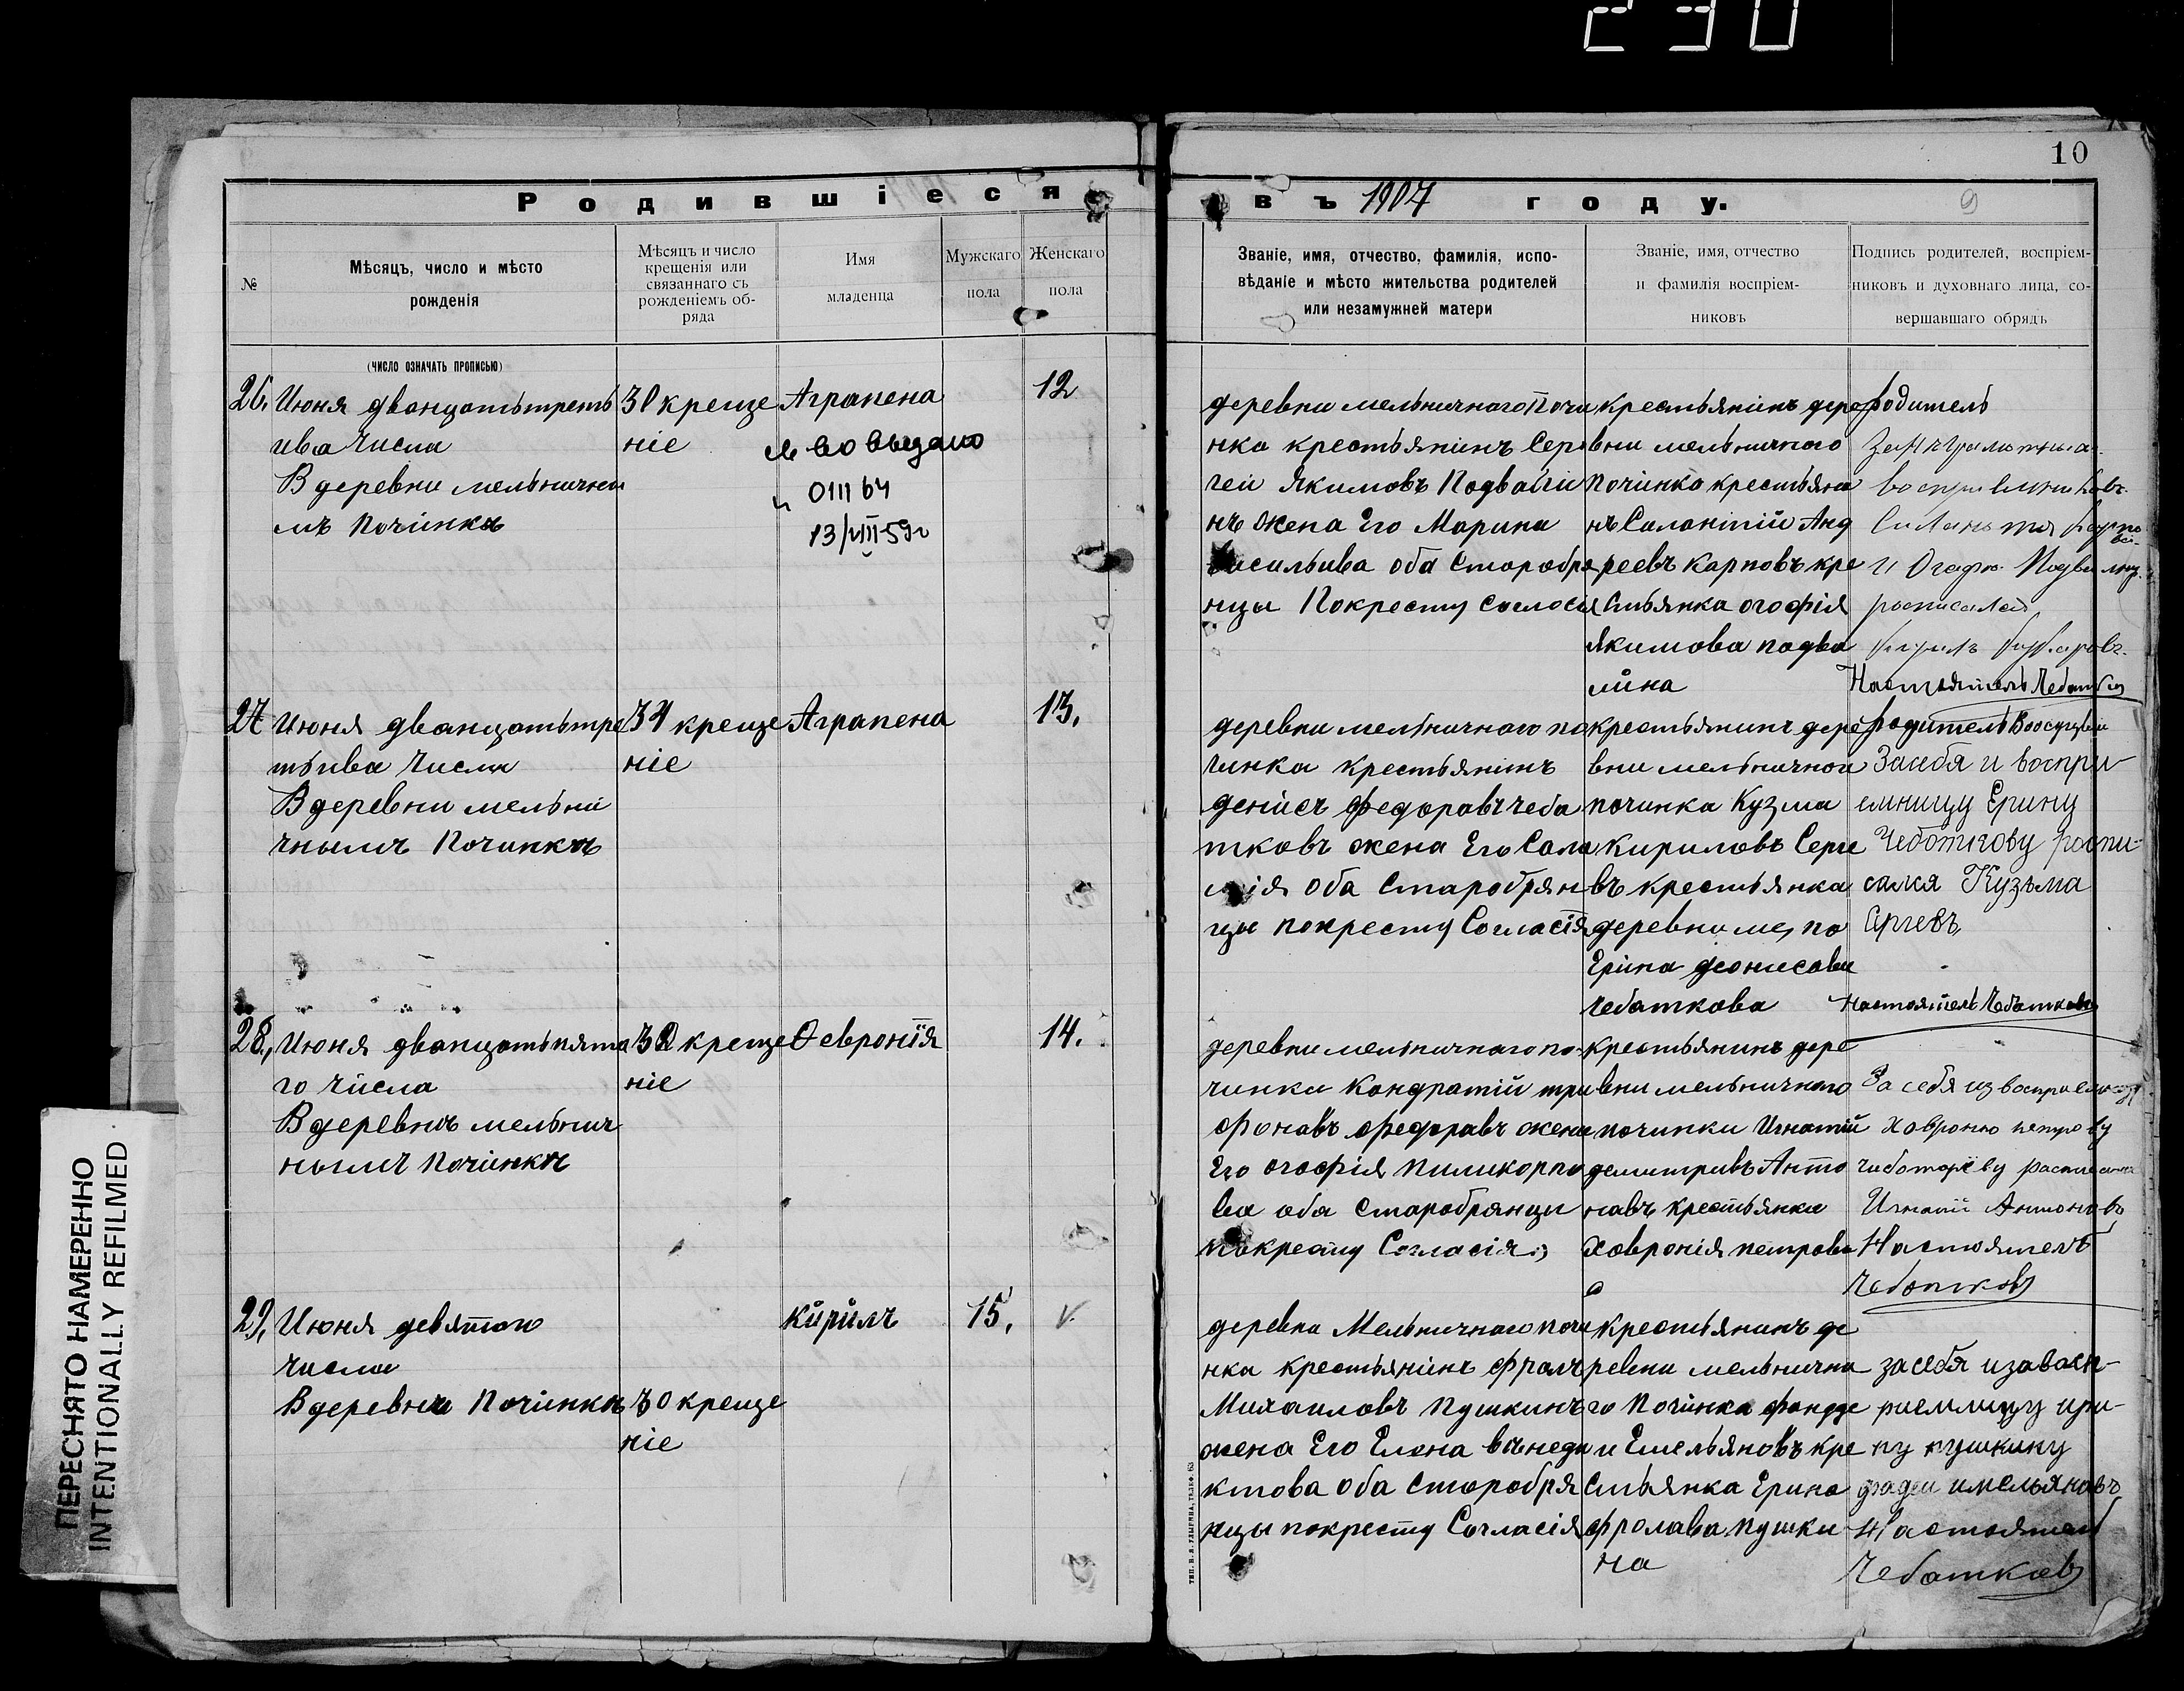 230
10
9
Родившіеся
въ 1907 году.
№
Мѣсяцъ, число и мѣсто
рожденія
Мѣсяцъ и число
крещенія или
связаннаго съ
рожденіемъ об-
ряда
Имя
младенца
Мужскаго
пола
Женскаго
пола
Званіе, имя, отчество, фамилія, испо-
вѣданіе и мѣсто жительства родителей
или незамужней матери
Званіе, имя, отчество
и фамилія воспріем-
никовъ
Подпись родителей, воспріем-
никовъ и духовнаго лица, со-
вершавшаго обрядъ
(число означать прописью)
26.
Июня дванцатьтреть
ива числа
В деревни мельничны
мъ Починкѣ
креще
ніе
Аграпена
св во выдано
13/VIII-59г
12
деревни мельничного Почи
нка крестьянинъ Сер
геи Якимовъ Подвали
нъ Жена Его Марина
Васильива оба Старобря
нцы Покресту Согласія
крестьянинъ дере
вни мельничного
Починка крестьяни
нъ Саланітій Анд
реевъ Карповъ кре
стьянка огофія
Якимова подва
лина
родитель
росписался
Настоятель Чебатков
27
Июня дванцатьтре
тьива числа
В деревни мельни
чнымъ Починкѣ
креще
ніе
Аграпена
13.
деревни мельничного по
чинка крестьянинъ
денисъ федоравъ чеба
тковъ жена Его Сало
мія оба Старобрян
цы покресту Согласія
крестьянинъ дере
вни мельничной
починка Кузма
Кириловъ Серге
въ крестьянка
деревни ме, по
Ерина деонисова
Чебаткова
родитель
За себя и воспри-
емницу Ерину
Чеботкову роспи-
сался Кузьма
Сргевъ
Настоятель Чебатковъ
28.
Июня дванцатьпято
го числа
В деревнѣ мельнич
нымъ Починкѣ
креще
ніе
Ѳевронїя
14.
деревни мельничного по
чинка Кондратій три
фонавъ федоравъ жена
Его огофія пиликорпо
ва оба Старобрянци
покресту Согласія
крестьянинъ дере
вни мельничного
починки Игнатій
демитривъ Анто
навъ крестьянка
Ховронія петрова
За себя из воспреемницу
Ховроню петрову
Игнатий Антоновъ
Настоятель
Чебатковъ
29.
Июня девятого
числа
В деревни Починкѣ
30 креще
ніе
Кирилъ
15.
V
деревни Мельничного почи
нка крестьянинъ фролъ
Михаиловъ Пушкинъ
жена Его Елена вѣнеди
ктова оба Старобря
нцы покресту Согласія
крестьянинъ де
ревни мельнично
го Починка фадде
и Емельяновъ кре
стьянка Ерина
фролава пушки
на
за себя и за восп-
риемницу ири-
ну пушкину
фадеи имельяновъ
Настоятель
Чебатковъ
ПЕРЕСНЯТО НАМЕРЕННО
INTENTIONALLY REFILMED